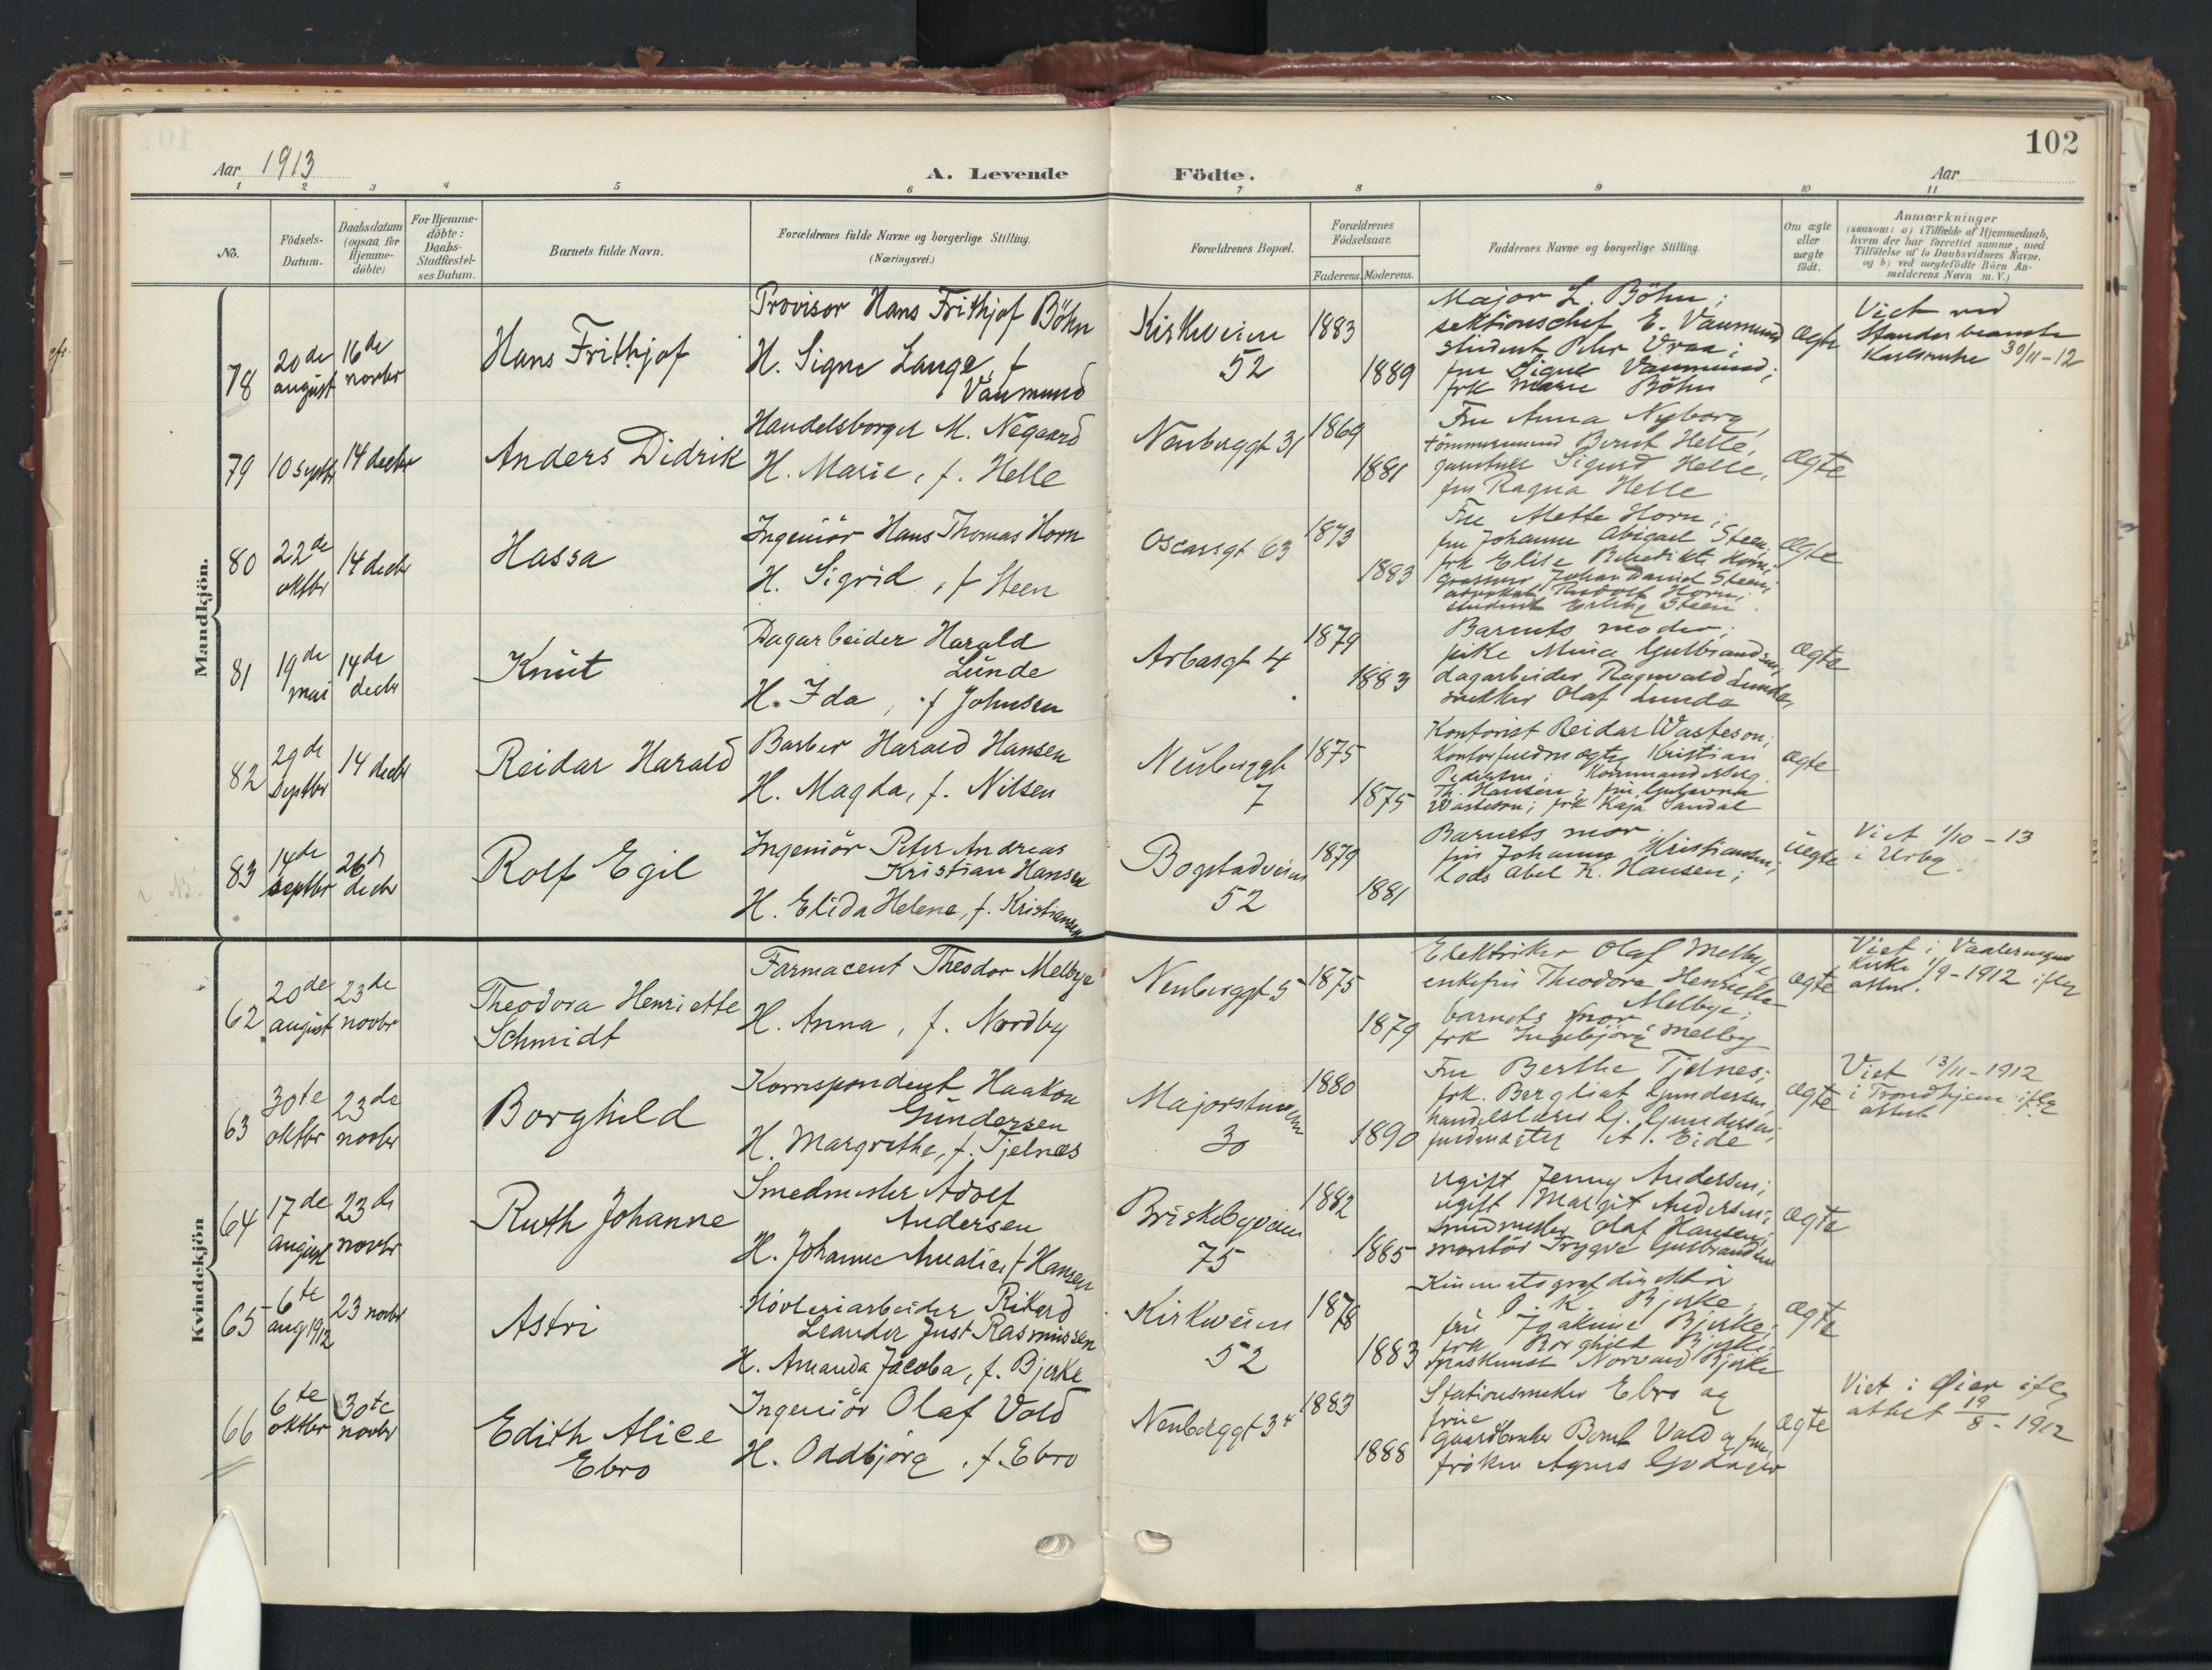 102
Aar 1913
A. Levende Födte.
Aar
1 2 3 4 5 6 7 8 9 10 11
No.
Födsels-Datum.
Daabsdatum (ogsaa for Hjemme-döbte)
For Hjemme-döbte: Daabs-Stadfæstel-ses Datum.
Barnets fulde Navn.
Forældrenes fulde Navne og borgerlige Stilling.
(Næringsvei.)
Forældrenes Bopæl.
Forældrenes Födselsaar.
Faderens. Moderens.
Faddernes Navne og borgerlige Stilling.
Om ægte eller uægte födt.
Anmærkninger
(saasom: a) i Tilfælde af Hjemmedaab,
hvem der har forrettet samme, med
Tilföielse af to Daabsvidners Navne.
og b) ved uægtefödte Börn An-
melderens Navn m. V.)
Mandkjön.
78
20de august
16de novbr
Hans Frithjof
Provisor Hans Frithjof Böhn
H. Signe Lange, f
Vaumund
Kirkeveien
52
1883
1889
Major L. Böhn;
sektionschef E. Vaumund
student Peter Vraa;
fru Signe Vaumund;
frk Marie Böhn
ægte
Viet ved
Karlsruhe 30/11-12
79
10 septbr
14 decbr
Anders Didrik
Handelsborger M. Négaard
H. Marie, f. Helle
Neuberggt 31
1869
1881
Fru Anna Nyborg,
tömmermand Bernt Helle,
Sigurd Helle,
fru Ragna Helle
ægte
80
22de oktbr
14 decbr
Hassa
Ingeniör Hans Thomas Horn
H. Sigrid, f Steen
Oscarsgt 63
1873
1883
Fru Mette Horn;
fru Johanne Abigael Steen;
frk Elise Benedikte Horn;
grosserer Johan Daniel Steen;
advokat Rudolf Horn;
student Erling Steen.
ægte
81
19de mai
14de decbr
Knut
Dagarbeider Harald
Lunde
H. Ida, f Johnsen
Arbosgt 4
1879
1883
Barnets moder;
pike Mina Gulbrandsen;
dagarbeider Ragnvald Lunde,
snekker Olaf Lunde
ægte
82
29de septbr
14 decbr
Reidar Harald
Barber Harald Hansen
H. Magda, f. Nilsen
Neuberggt
7
1875
1875
Kontorist Reidar Wasteson;
Kontorfuldmægtig Kristian
Pedersen;
Th. Hansen; fru
Wasteson; frk Kaja Sandal
ægte
83
14de septbr
26de decbr
Rolf Egil
Ingeniör Peter Andreas
Kristian Hansen
H. Elida Helene, f. Kristiansen
Bogstadveien
52
1879
1881
Barnets mor
fru Johanne Kristiansen;
lods Abel K. Hansen;
uegte
Viet 1/10-13
i Urby.
Kvindekjön
62
20de august
23de novbr
Theodora Henriette
Schmidt
Farmaceut Theodor Melbye
H. Anna, f. Nordby
Neuberggt 5
1875
1879
Elektriker Olaf Melbye
enkefru Theodora Henriette
Melbye;
barnets mor
frk Ingebjörg Melby
ægte
Viet i Vaalerengens
Kirke 1/9-1912 iflg
attest.
63
30te oktbr
23de novbr
Borghild
Korrespondent Haakon
Gundersen
H. Margrethe, f. Tjelnæs
Majorstuveien
30
1880
1890
Fru Berthe Tjelnes;
frk. Bergliot Gundersen,
handelslærer G. Gundersen;
A. Eide
ægte
Viet 13/11-1912
i Trondhjem iflg
attest
64
17de august
23de novbr
Ruth Johanne
Smedmester Adolf
Andersen
H. Johanne Amalie, f Hansen
Briskebyveien
75
1882
1885
ugift Jenny Andersen;
ugift Margit Andersen;
smedmester Olaf Hansen;
montör Trygve Gulbrandsen
ægte
65
6te aug 1912
23 novbr
Astri
Hövleriarbeider Rikard
Leander Just Rasmussen
H. Amanda Jacoba, f. Bjerke
Kirkeveien
52
1878
1883
Kinematografdirektör
O. K. Bjerke,
fru Joakime Bjerke;
frk Borghild Bjerke;
Norvard Bjerke
ægte
66
6te oktbr
30te novbr
Edith Alice
Ebro
Ingeniör Olaf Vold
H. Oddbjörg, f. Ebro
Neuberggt 34
1883
1888
Stationsmester Ebro og
frue
gaardbruker Bernt Vold og frue,
fröken Agnes Godager
ægte
Viet i Öier iflg
attest 19/8-1912